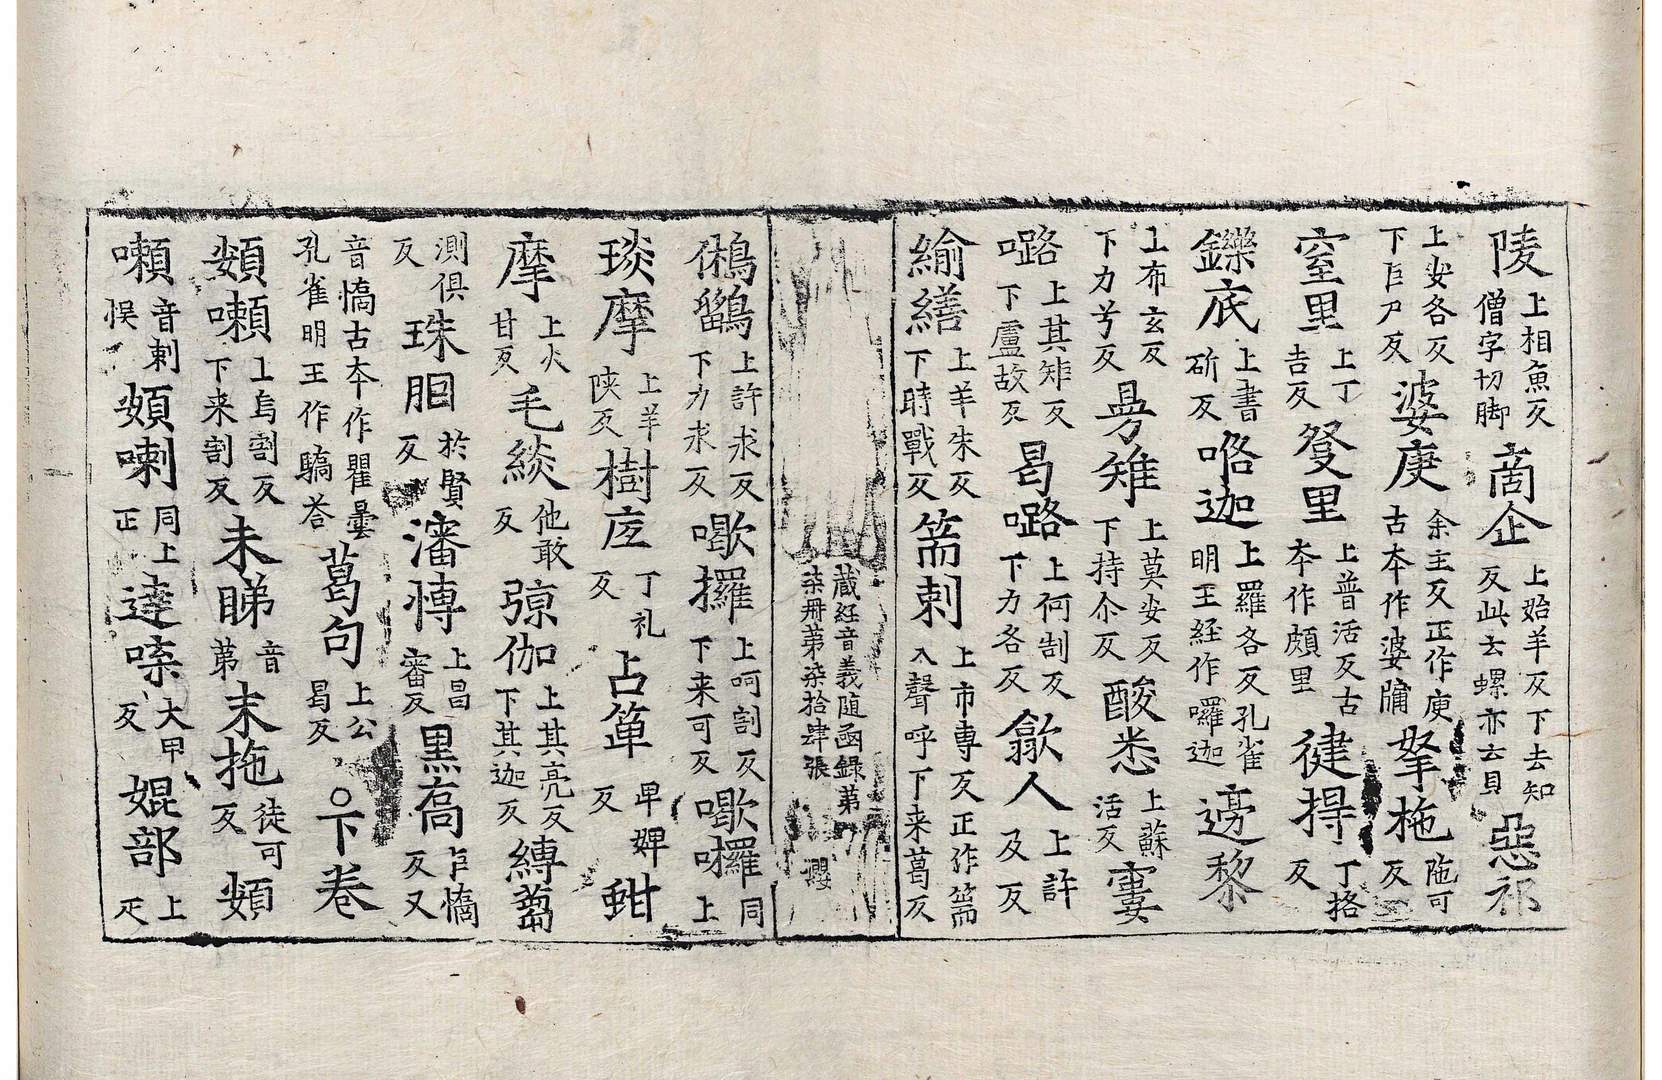 陵上相魚反僧字切脚商企上始羊反下去知反此去螺亦云貝惡祁
上安各反下巨尸反婆庚余主反正作庾古本作婆牗拏柂陁可反
窒里上丁吉反癹里上普活反古本作頗里徤挊丁挌反
鑠底上書斫反咯迦上羅各反孔雀明王経作囉迦謗黎
上布玄反下力兮反昺雉上莫安反下持尒反酸悉上蘇活反寠
㗨上其矩反下盧故反曷㗨上何割反下力各反歙人上許及反
緰繕上羊朱反下時戰反筩剌上市専反正作篅入聲呼下来葛反
蔵経音義随函録第柒冊苐柒拾肆張 纓
鵂鶹上許求反下力求反㗿攞上呵割反下来可反㗿囉同上
琰摩上羊陕反樹㡳丁礼反占箄卑婢反蚶
摩上火甘反毛緂他敢反弶伽上其亮反下其迦反縛蒭
測俱反珠胭於賢反瀋慱上昌審反黒喬巨憍反又
音憍古本作瞿曇孔雀明王作驕荅葛句上公曷反○下卷
頞㘔上烏割反下来割反未睇音苐末拖徒可反頞
㘔音剌悮頞喇同上正達㗚大甲反婫部上